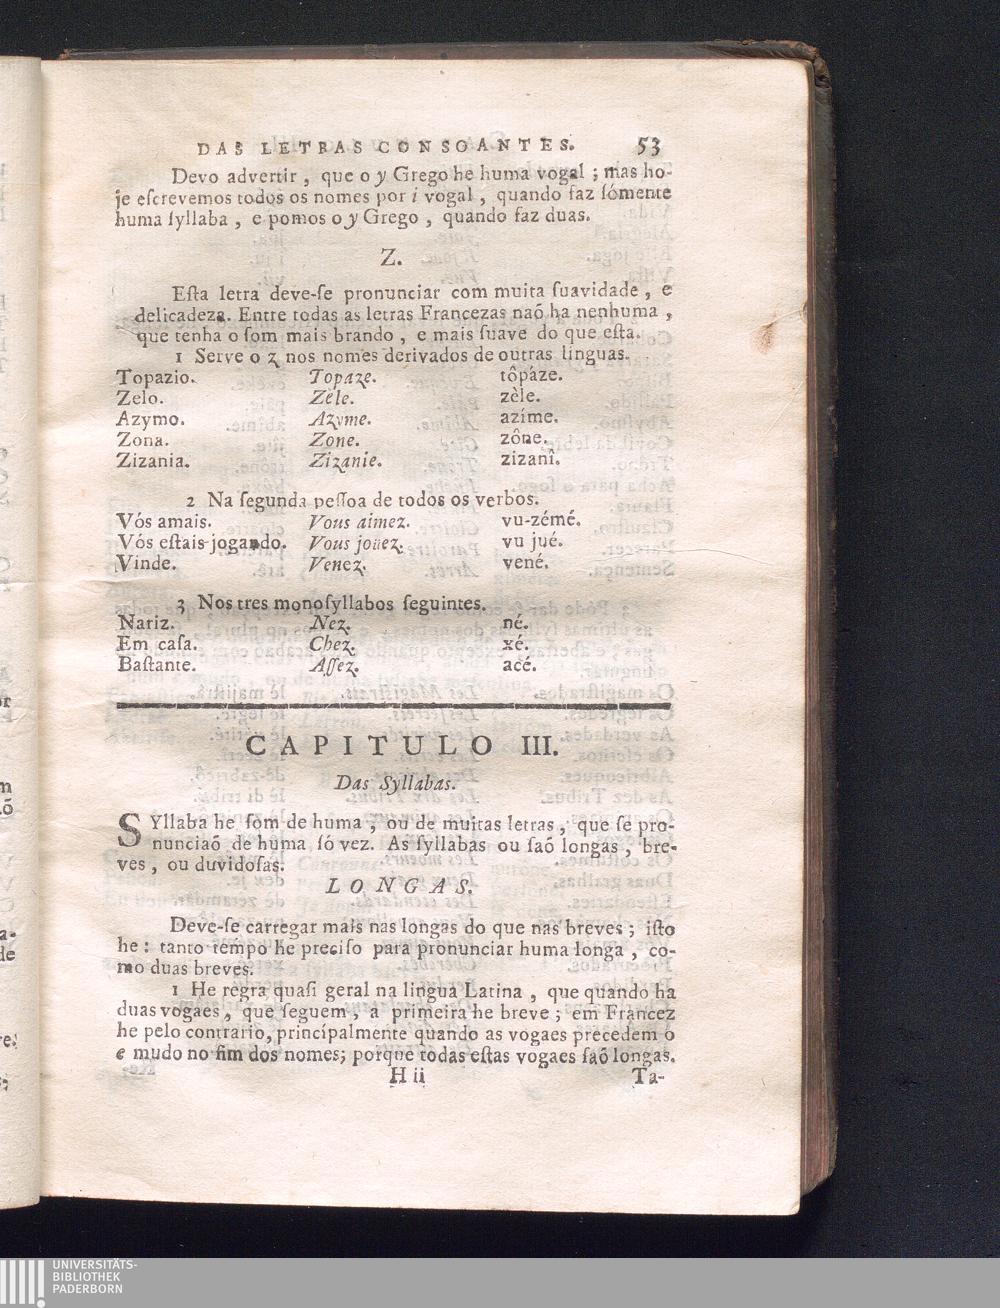 DAS LETRAS CONSOANTES. 53
Devo advertir, que o y Grego he huma vogal; mas ho-
je eſcrevemos todos os nomes por i vogal, quando faz ſómente
huma ſyllaba, e pomos o y Grego, quando faz duas.
Z.
Eſta letra deve-ſe pronunciar com muita ſuavidade, e
delicadeza. Entre todas as letras Francezas naõ ha nenhuma,
que tenha o ſom mais brando, e mais ſuave do que eſta.
1 Serve o z nos nomes derivados de outras linguas.
Topazio. Topaze. tôpáze.
Zelo. Zèle. zèle.
Azymo. Azyme. azíme.
Zona. Zone. zône.
Zizania. Zizanie. zizanî.
2 Na ſegunda peſſoa de todos os verbos.
Vós amais. Vous aimez. vu-zémé.
Vós eſtais jogando. Vous jouez. vu jué.
Vinde. Venez. vené.
3 Nos tres monoſyllabos ſeguintes.
Nariz. Nez. né.
Em caſa. Chez. xé.
Baſtante. Aſſez. acé.
CAPITULO III.
Das Syllabas.
SYllaba he ſom de huma, ou de muitas letras, que ſe pro-
nunciaõ de huma ſó vez. As ſyllabas ou ſaõ longas, bre-
ves, ou duvidoſas.
LONGAS.
Deve-ſe carregar mais nas longas do que nas breves; iſto
he: tanto tempo he preciſo para pronunciar huma longa, co-
mo duas breves.
1 He regra quaſi geral na lingua Latina, que quando ha
duas vogaes, que ſeguem, a primeira he breve; em Francez
he pelo contrario, principalmente quando as vogaes precedem o
e mudo no fim dos nomes; porque todas eſtas vogaes ſaõ longas.
H ii Ta-
UNIVERSITÄTS-
BIBLIOTHEK
PADERBORN